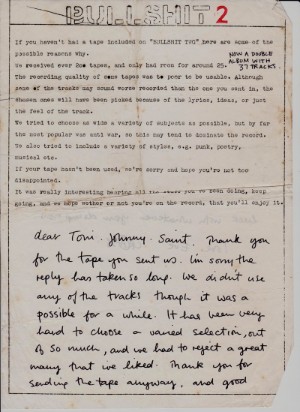 BULLSHIT 2
If you haven't had a tape included on "BULLSHIT TWO" here are some of the
possible reasons why.
NOW A DOUBLE
ALBUM WITH
37 TRACKS.
We received over 200 tapes, and only had room for around 25.
The recording quality of some tapes was to poor to be usable. Although
some of the tracks may sound worse recorded than the one you want in, the
chosen ones will have been picked because of the lyrics, ideas, or just
the feel of the track.
We tried to choose as wide a variety of subjects as possible, but by far
the most popular was anti war, so this may tend to dominate the record.
We also tried to include a variety of styles, e.g. punk, poetry,
musical etc.
If your tape hasn't been used, we're sorry and hope you're not too
disappointed.
It was really interesting hearing all the you've been doing, keep
going, and we hope wether or not you're on the record, that you'll enjoy it.
dear Toni. Johnny. Saint. Thank you
for the tape you sent us. I'm sorry the
reply has taken so long. We didn't use
any of the tracks though it was a
possible for a while. It has been very
hard to choose a varied selection, out
of so much, and we had to reject a great
many that we liked. Thank you for
sending the tape anyway, and good